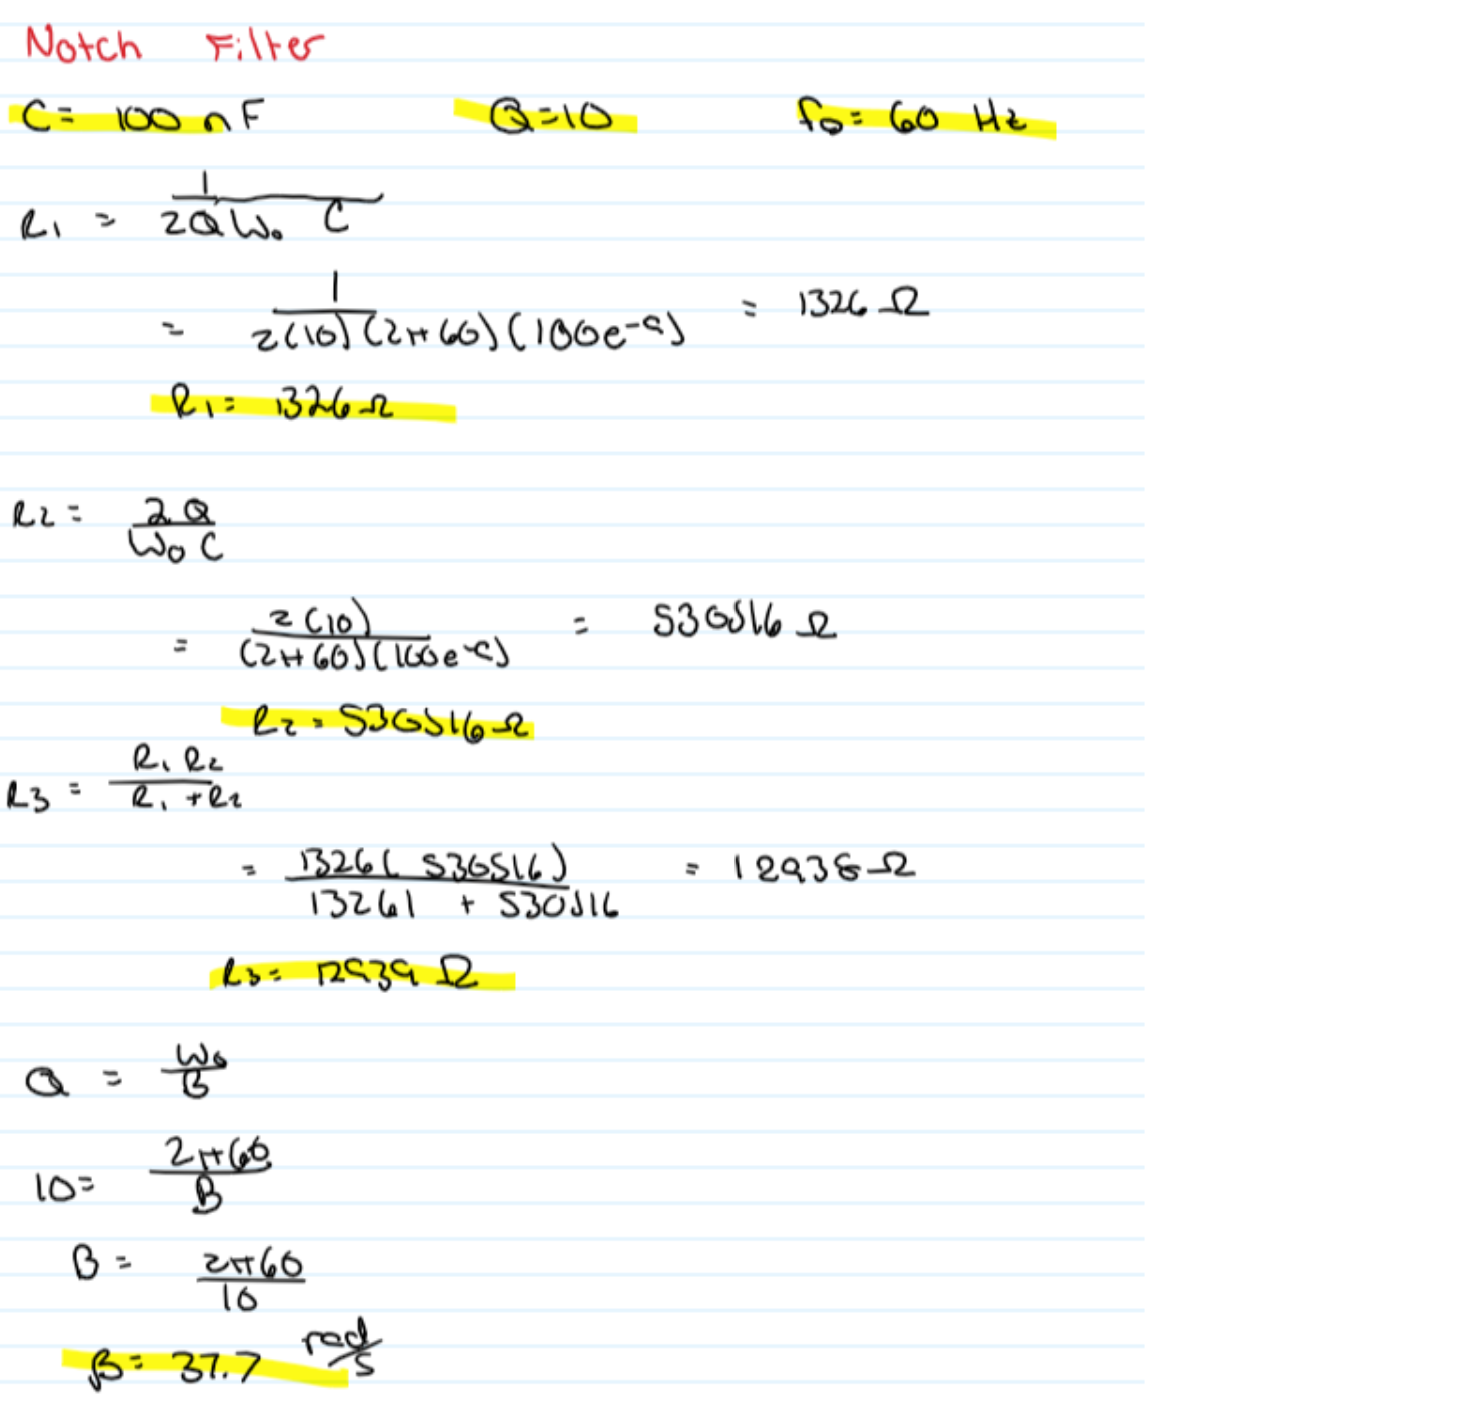 Notch Filter
C = 100 nF Q=10 f0 = 60 Hz
R1 = 1 / 2QW0 C
= 1 / 2(10)(2π60)(100e-9) = 1326 Ω
R1 = 1326 Ω
R2 = 2Q / W0 C
= 2(10) / (2π60)(100e-9) = 530516 Ω
R2 = 530516 Ω
R3 = R1 R2 / R1 + R2
= 1326( 530516) / 13261 + 530516 = 12938 Ω
R3 = 12939 Ω
Q = W0 / B
10 = 2π60 / B
B = 2π60 / 10
β = 37.7 rad/s